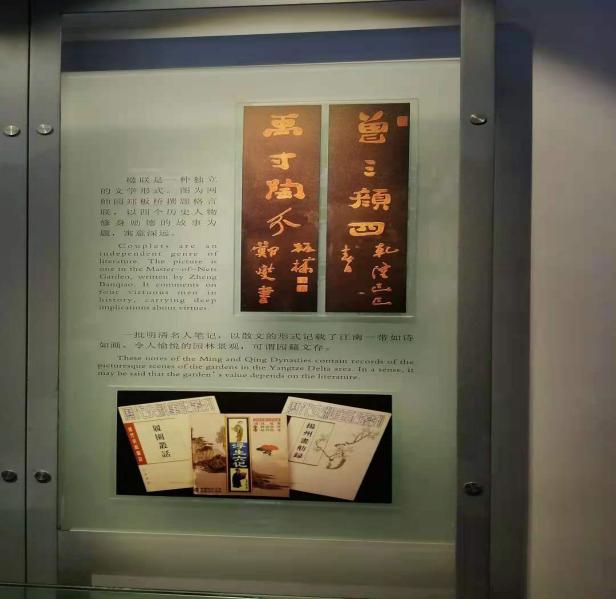 曾三顔四
禹寸陶分
板橋
鄭燮書
楹联是一种独立
的文学形式。图为网
师园郑板桥撰题格言
联，以四个历史人物
修身励德的故事为
题，寓意深远。
Couplets are an
independent genre of
literature. The picture is
one in the Master-of-Nets
Garden, written by Zheng
Banqiao. It comments on
four virtuous men in
history, carrying deep
implications about virtues
一批明清名人笔记，以散文的形式记载了江南一带如诗
如画、令人愉悦的园林景观，可谓园藉文存。
These notes of the Ming and Qing Dynasties contain records of the
picturesque scenes of the gardens in the Yangtze Delta area. In a sense, it
may be said that the garden's value depends on the literature.
履園叢話
浮生六记
揚州畫舫録